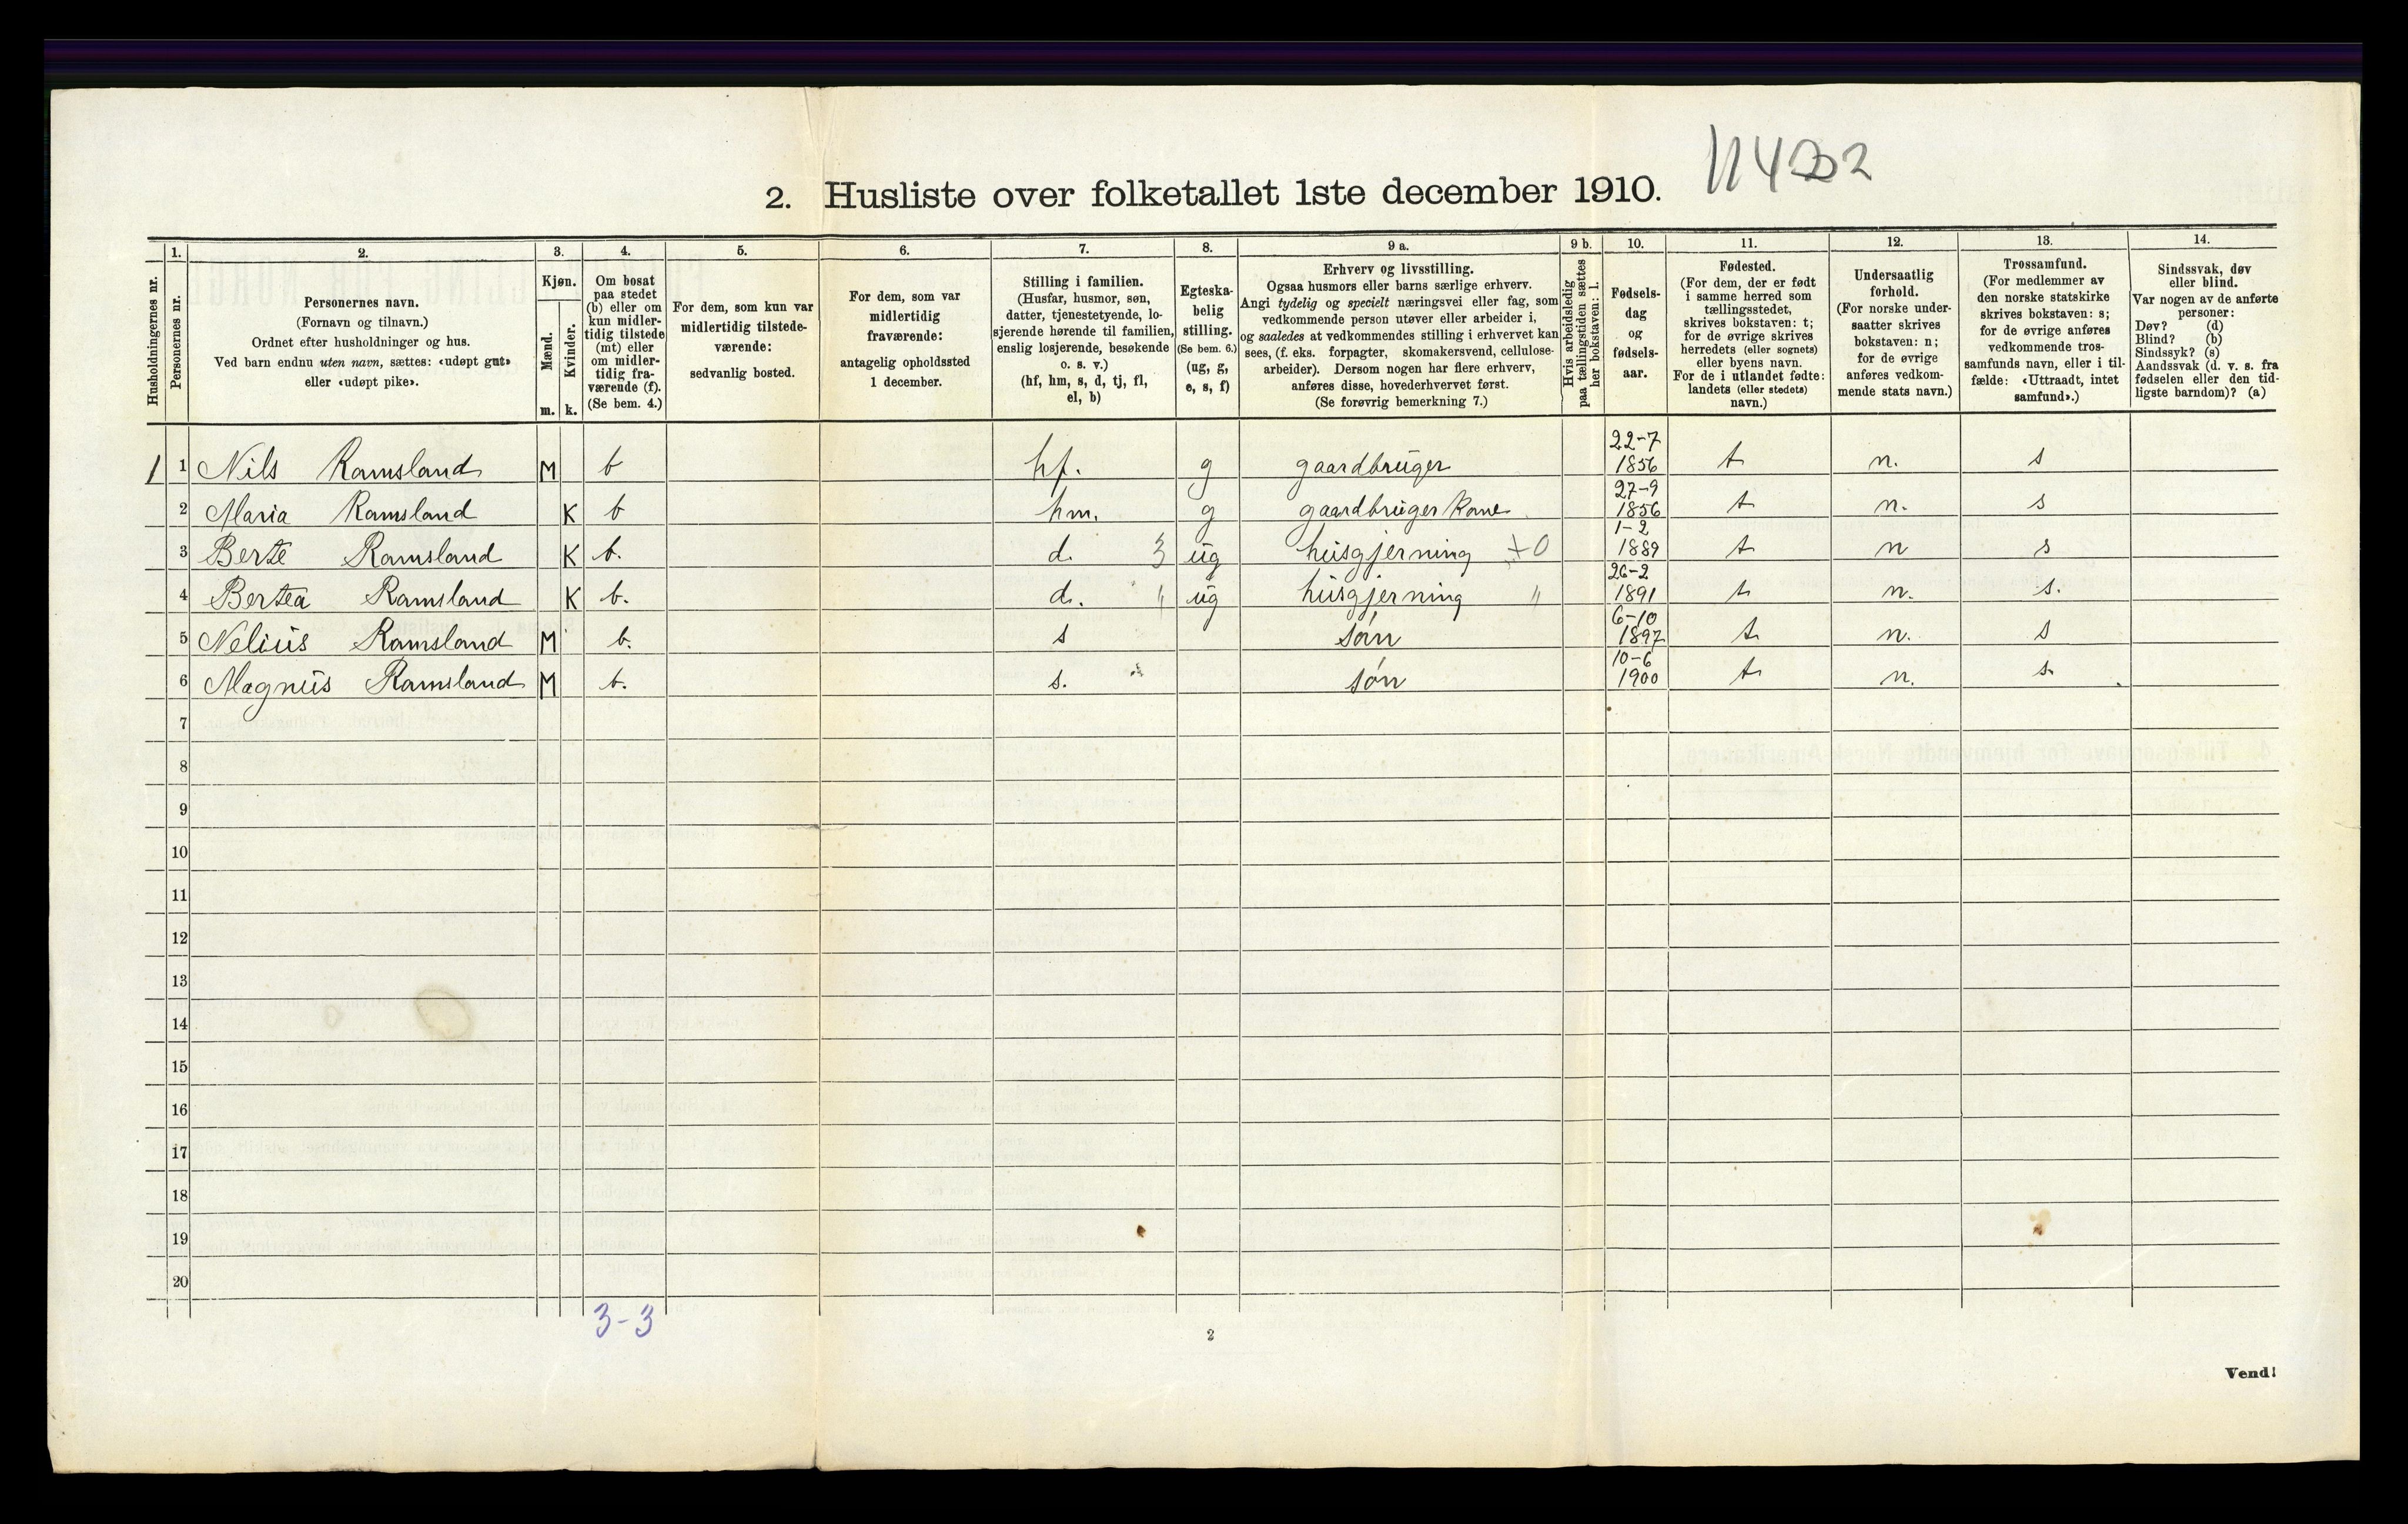 2. Husliste over folketallet 1ste december 1910.
Husholdningernes nr.
1. Personernes nr.
2. Personernes navn.
(Fornavn og tilnavn.)
Ordnet efter husholdninger og hus.
Ved barn endnu uten navn, sættes: «udøpt gut»
eller «udøpt pike».
3. Kjøn.
Mænd. m.
Kvinder. k.
4. Om bosat
paa stedet
(b) eller om
kun midler-
tidig tilstede
(mt) eller
om midler-
tidig fra-
værende (f).
(Se bem. 4.)
5. For dem, som kun var
midlertidig tilstede-
værende:
sedvanlig bosted.
6. For dem, som var
midlertidig
fraværende:
antagelig opholdssted
1 december.
7. Stilling i familien.
(Husfar, husmor, søn,
datter, tjenestetyende, lo-
sjerende hørende til familien,
enslig losjerende, besøkende
o. s. v.)
(hf, hm, s, d, tj, fl,
el, b)
8. Egteska-
belig
stilling.
(Se bem. 6.)
(ug, g,
e, s, f)
9 a. Erhverv og livsstilling.
Ogsaa husmors eller barns særlige erhverv.
Angi tydelig og specielt næringsvei eller fag, som
vedkommende person utøver eller arbeider i,
og saaledes at vedkommendes stilling i erhvervet kan
sees, (f. eks. forpagter, skomakersvend, cellulose-
arbeider). Dersom nogen har flere erhverv,
anføres disse, hovederhvervet først.
(Se forøvrig bemerkning 7.)
9 b. Hvis arbeidsledig
paa tællingstiden sættes
her bokstaven: l.
10. Fødsels-
dag
og
fødsels-
aar.
11. Fødested.
(For dem, der er født
i samme herred som
tællingsstedet,
skrives bokstaven: t;
for de øvrige skrives
herredets (eller sognets)
eller byens navn.
For de i utlandet fødte:
landets (eller stedets)
navn.)
12. Undersaatlig
forhold.
(For norske under-
saatter skrives
bokstaven: n;
for de øvrige
anføres vedkom-
mende stats navn.)
13. Trossamfund.
(For medlemmer av
den norske statskirke
skrives bokstaven: s;
for de øvrige anføres
vedkommende tros-
samfunds navn, eller i til-
fælde: «Uttraadt, intet
samfund».)
14. Sindssvak, døv
eller blind.
Var nogen av de anførte
personer:
Døv? (d)
Blind? (b)
Sindssyk? (s)
Aandssvak (d. v. s. fra
fødselen eller den tid-
ligste barndom)? (a)
1 1 Nils Ramsland M b hf. g gaardbruger 22-7 1856 t n. s
2 Maria Ramsland K b hm. g gaardbruger kone 27-9 1856 t n. s
3 Berte Ramsland K b. d. 3 ug husgjerning +0 1-2 1889 t n s
4 Bertea Ramsland K b. d. " ug husgjerning " 26-2 1891 t n. s.
5 Nelius Ramsland M b. s søn 6-10 1897 t n. s
6 Magnus Ramsland M b. s. søn 10-6 1900 t n. s
7
8
9
10
11
12
13
14
15
16
17
18
19
20
3-3
2
Vend!